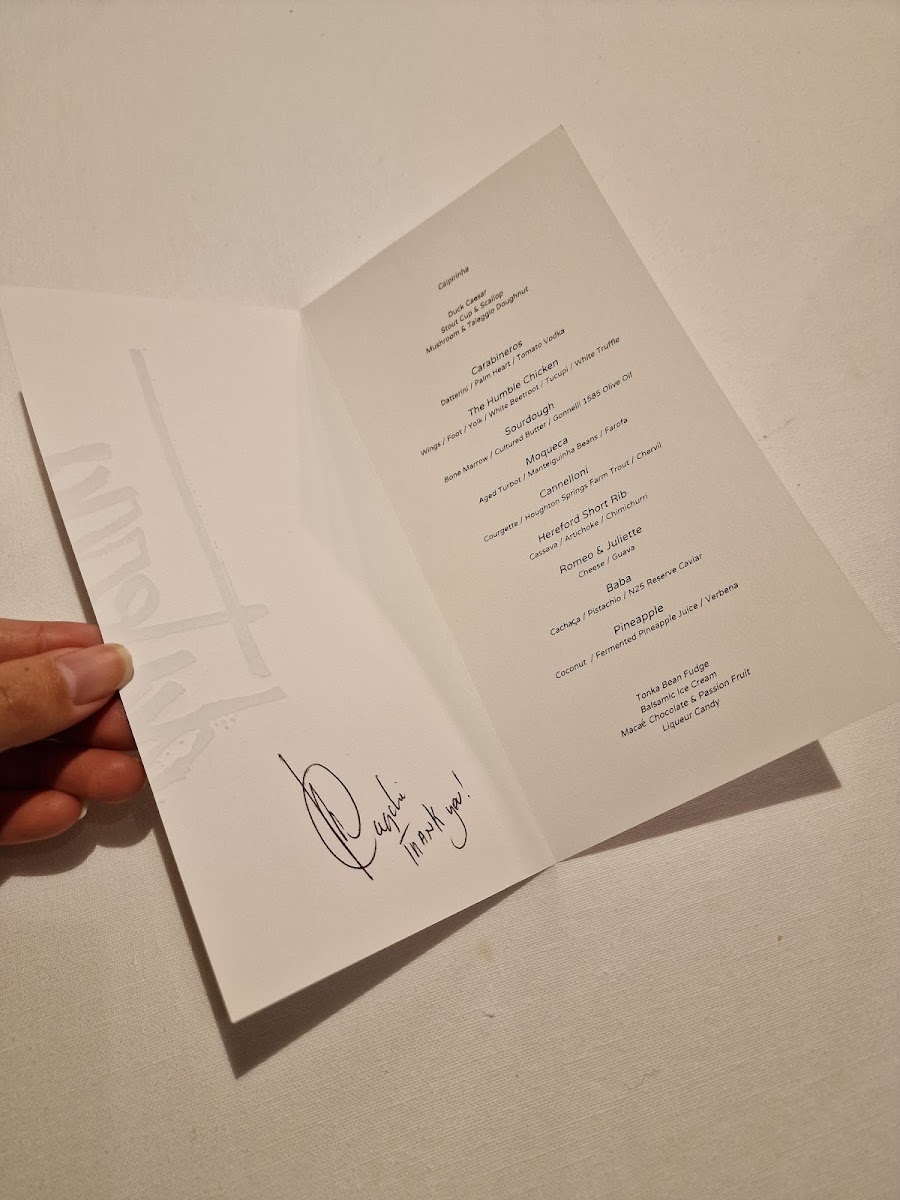 Caipirinha
Duck Caesar
Stout Cup & Scallop
Mushroom & Taleggio Doughnut
Carabineros
Datterini / Palm Heart / Tomato Vodka
The Humble Chicken
Wings / Foot / Yolk / White Beetroot / Tucupi / White Truffle
Sourdough
Bone Marrow / Cultured Butter / Gonnelli 1585 Olive Oil
Moqueca
Aged Turbot / Manteiguinha Beans / Farofa
Cannelloni
Courgette / Houghton Springs Farm Trout / Chervil
Hereford Short Rib
Cassava / Artichoke / Chimichurri
Romeo & Juliette
Cheese / Guava
Baba
Cachaça / Pistachio / N25 Reserve Caviar
Pineapple
Coconut / Fermented Pineapple Juice / Verbena
Tonka Bean Fudge
Balsamic Ice Cream
Macaé Chocolate & Passion Fruit
Liqueur Candy
THANK ya!